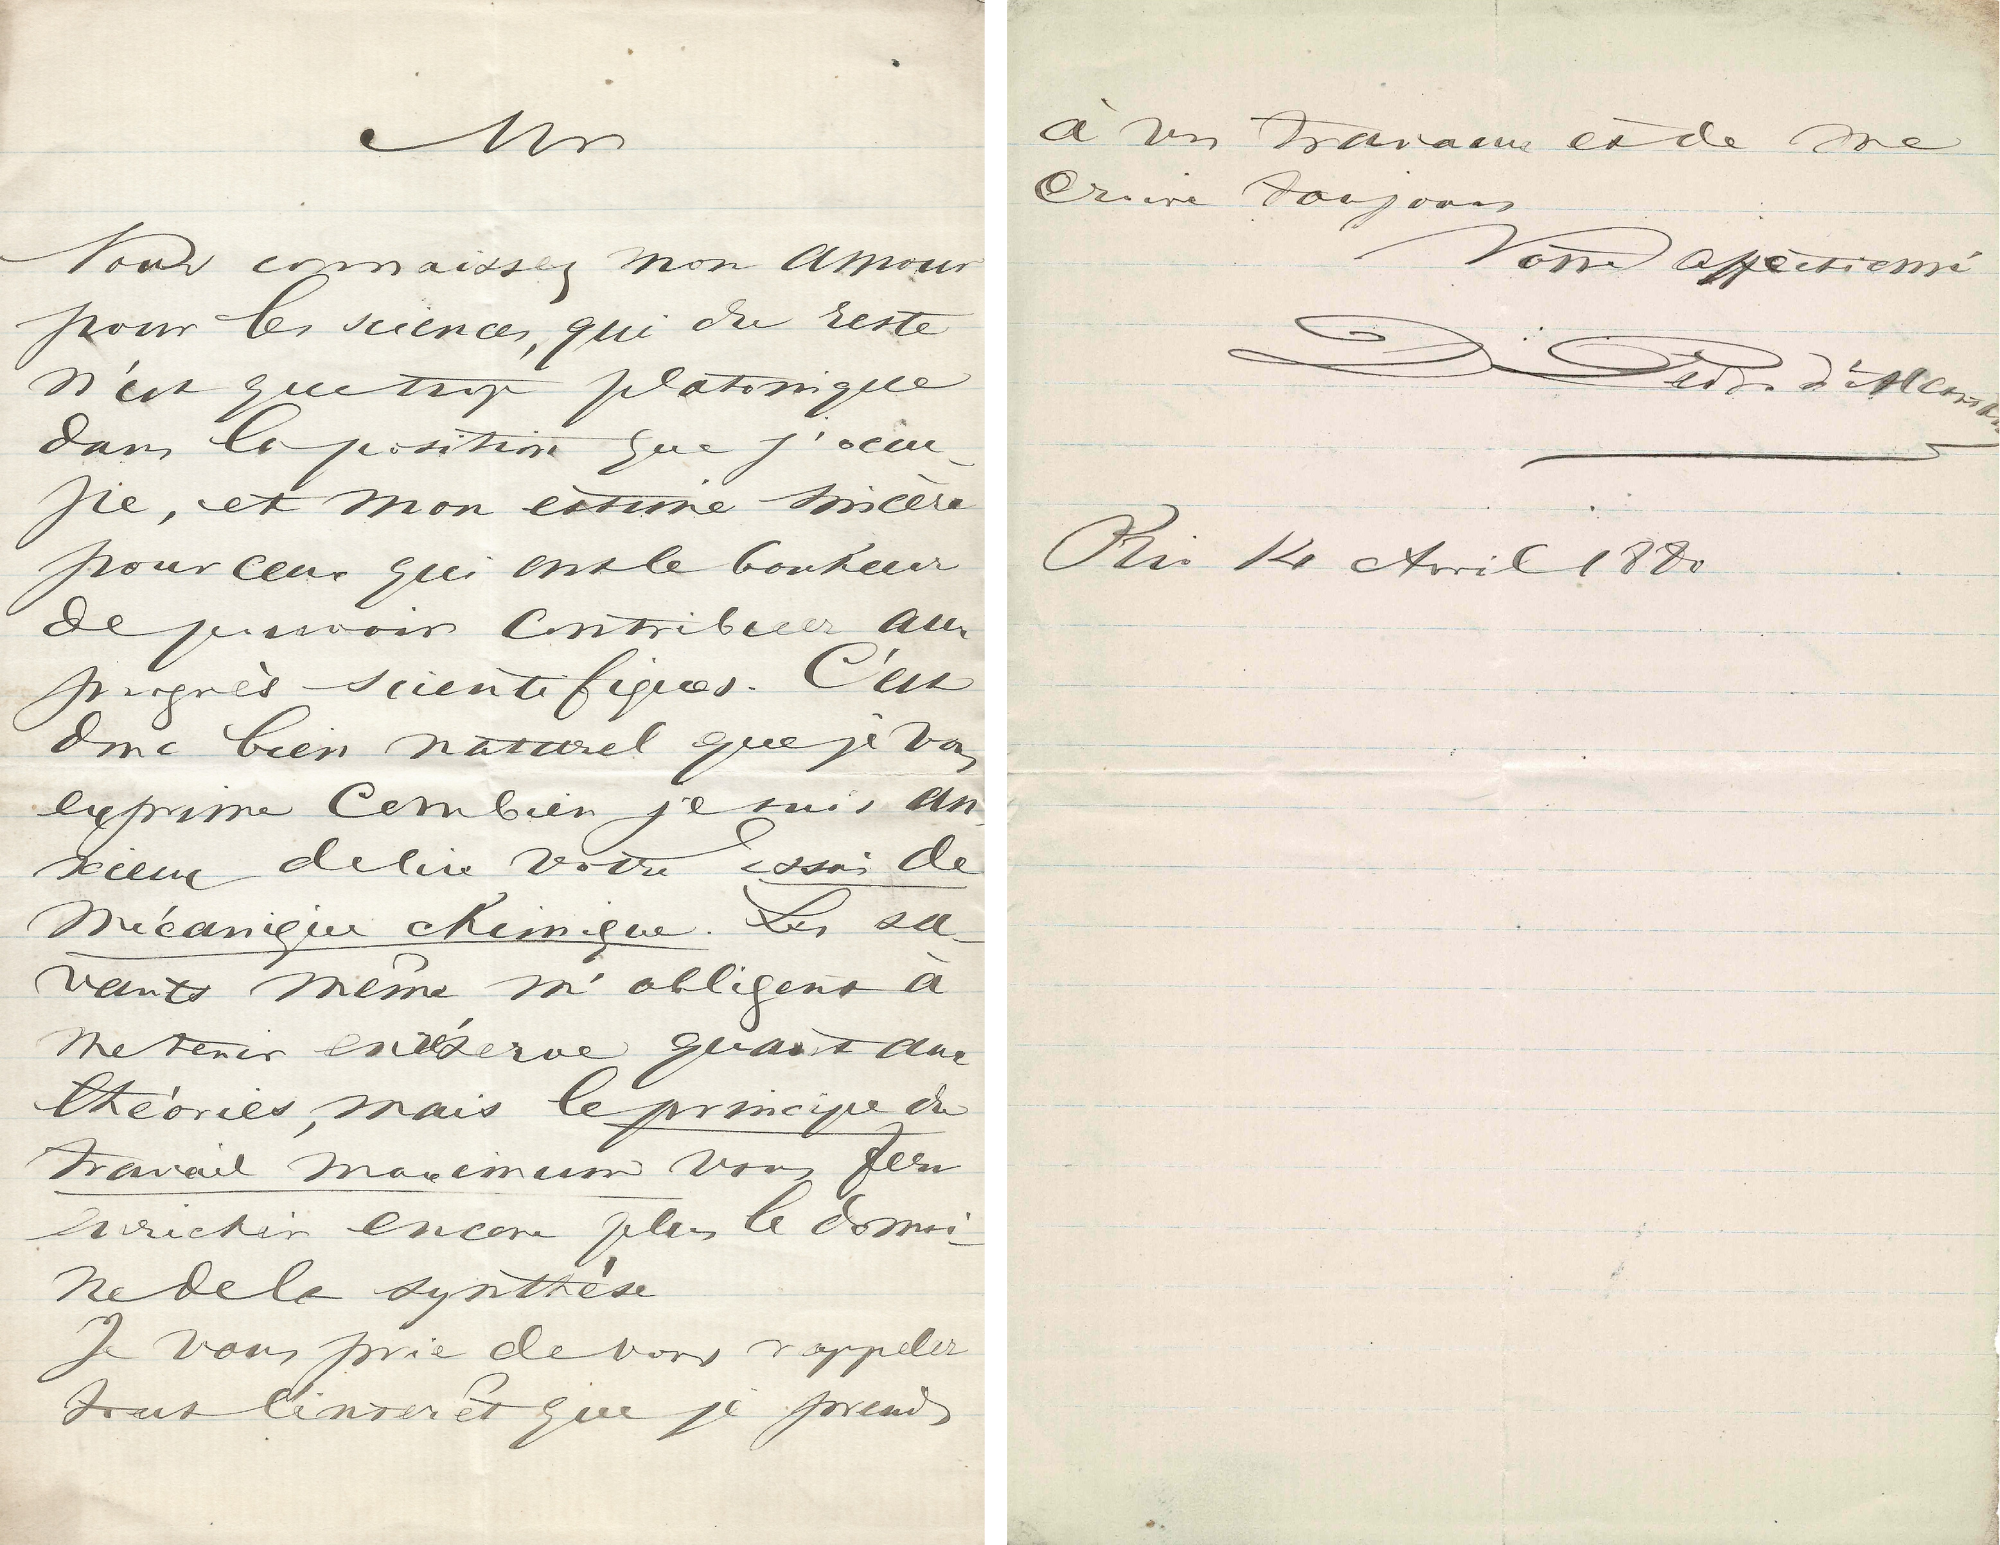 Mr
Vous connaissez mon amour
pour les sciences, qui du reste
n'est que trop platonique
dans la position que j'occu-
pie, et mon estime sincère
pour ceux qui ont le bonheur
de pouvoir contribuer aux
progrès scientifiques. C'est
donc bien naturel que je vous
exprime combien je suis an-
xieux de lire votre essai de
mécanique chimique. Les sa-
vants même m'obligent à
me tenir en réserve quant aux
théories, mais le principe du
travail maximum vous fera
enrichir encore plus le domai-
ne de la synthèse
Je vous prie de vous rappeler
tout l'interêt que je prends
à vos travaux et de me
croire toujours
Votre affectionné
D. Pedro d'Alcantara
Rio 14 Avril 1880